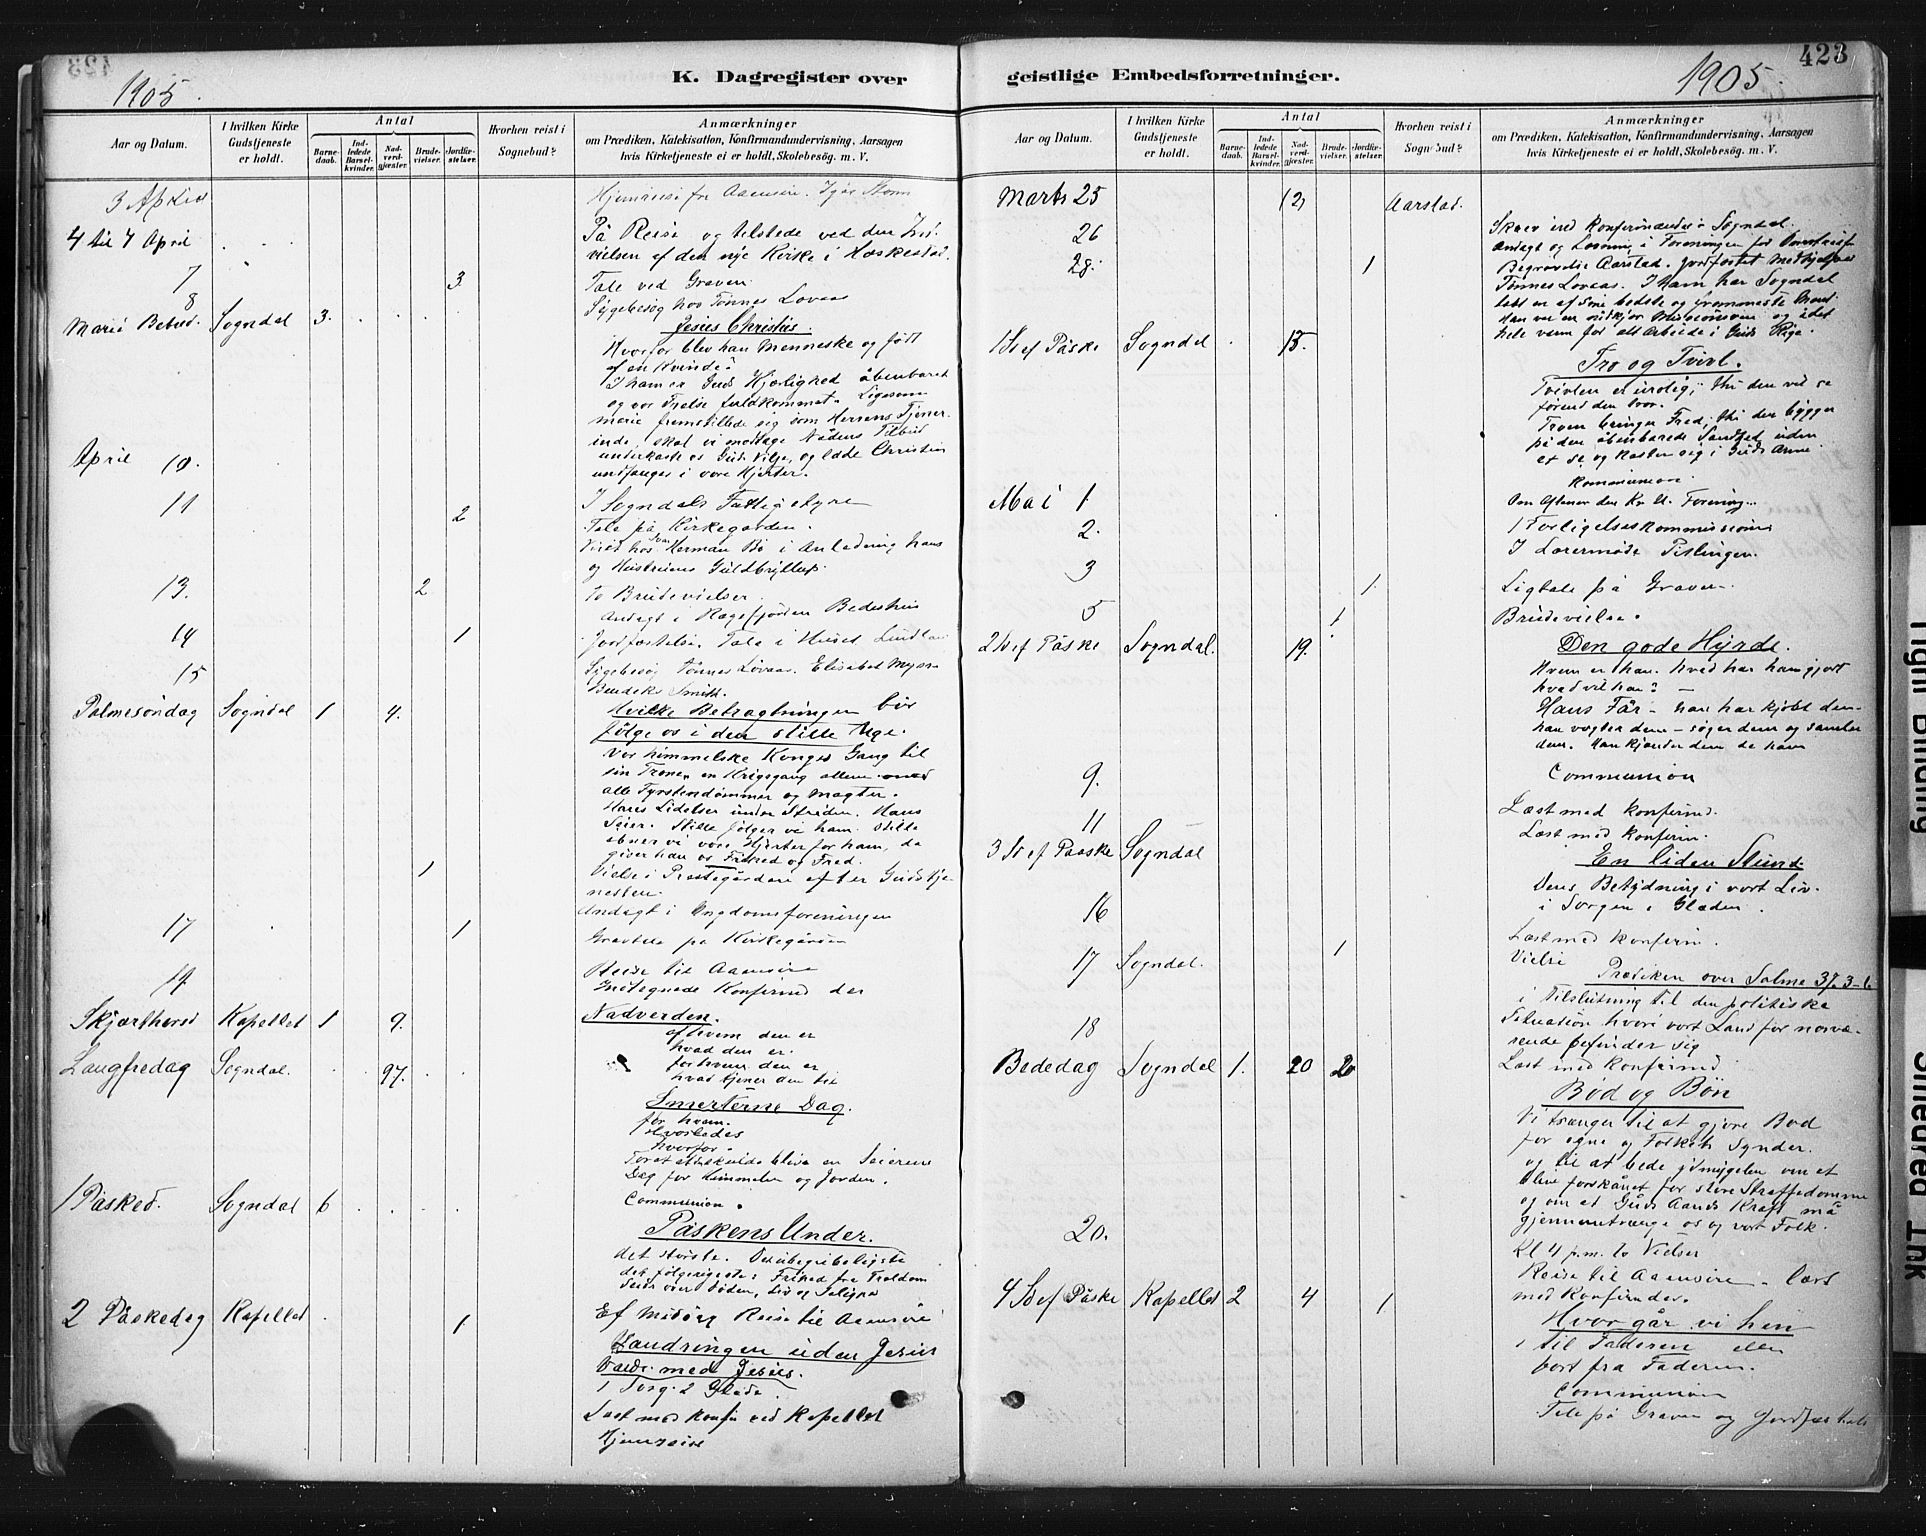 423
1905.
K. Dagregister over
I hvilken Kirke
Gudstjeneste
er holdt.
Aar og Datum.
Antal
Barne-
daab.
Ind-
ledede
Barsel-
kvinder.
Nad-
verd-
gjester.
Brude-
vielser.
Jordfæ-
stelser.
Hvorhen reist i
Sognebud?
Anmærkninger
om Prædiken, Katekisation, Konfirmandundervisning, Aarsagen
hvis Kirketjeneste ei er holdt, Skolebesög. m. V.
3 April Hjemreise fra Aaensire. Storm
4 til 7 April På Reise og tilstede ved den
vielsen af den nye Kirke i Heskestad.
7 3 Tale ved Graven
8 Sygebesög hos Tönnes Lovaas
Mariæ Bebud. Sogndal 3. Jesus Christus.
Hvorfor blev han Menneske og født
af en Kvinde?
I ham er Guds Kjærlighed åbenbaret
og vor Frelse fuldkommet. Ligesom
Marie fremstillede sig som Herrens Tjener-
inde, skal vi modtage Nådens Tilbud
underkaste os Guds Vilje, og lade Christus
undfanges i vore Hjerter.
April 10. I Sogndals Fattigstyre
11 2 Tale på Kirkegården.
Visit hos Herman Bø i Anledning hans
og Hustrues Guldbryllup.
13. 2 To Brudevielser.
Andagt i Ragefjorden Bedehus
14 1 Jordfæstelse. Tale i Huset
15 Sygebesög Tönnes Lovaas. Elisabet
Smith.
Palmesöndag Sogndal 1 4. Hvilke Betragtninger bör
følge os i den stille Uge.
Vor himmelske Konges Gang til
sin Trone, en Krigsgang
alle Fyrstendömmer og Magter.
Hans Lidelser under Striden. Hans
Seier. Stille følger vi ham. Stille
åbner vi vore Hjerter for ham, da
giver han os Frihed og Fred.
1 Vielse i Prestegården efter Gudstje-
nesten.
Andagt i Ungdomsforeningen
17 1 Gravtale på Kirkegården
19. Reise til Aaensire
Konfirmd der
Skjærthorsd Kapellet 1 9. Nadverden.
af hvem den er
hvad den er
for hvem den er
hvad tjener den til
Langfredag Sogndal. 97. Smerterne Dag.
for hvem.
Hvorledes
hvorfor.
en Seierens
Dag for Himmelen og Jorden.
Communion.
1 Påsked. Sogndal 6 Påskens Under.
det største. Det ubegribeligste
det følgerigeste: Frihed fra Troldom
Seier over Döden, Liv og Salighed
2 Påskedag Kapellet 1 Ef Middag Reise til Aaensire
Vandringen uden Jesus
Vandr. med Jesus.
1 Sorg. 2 Glæde.
Læst med Konfir ved Kapellet
Hjemreise
423
1905.
geistlige Embedsforretninger.
Aar og Datum.
I hvilken Kirke
Gudstjeneste
er holdt.
Antal
Barne-
daab.
Ind-
ledede
Barsel-
kvinder.
Nad-
verd-
gjester.
Brude-
vielser.
Jordfæ-
stelser.
Hvorhen reist i
Sognebud?
Anmærkninger
om Prædiken, Katekisation, Konfirmandundervisning, Aarsagen
hvis Kirketjeneste ei er holdt, Skolebesög. m. V.
Marts 25 12 Aarstad.
26 Skrev ind Konfirmander i Sogndal.
Andagt og Losning i Foreningen for
28. 1 Begravelse Aarstad. Jordfæstet Medhjelper
Tönnes Lovaas. I ham har Sogndal
tabt en af sine bedste og frommeste Mænd.
Han var en ivrig Missionsven og i det
hele varm for alt Arbeide i Guds Rige.
1 S ef Påske Sogndal 15. Tro og Tvivl.
Tvivlen er urolig, thi den vil se
førend den tror.
Troen bringer Fred, thi den bygger
på den åbenbarede Sandhed uden
at se og kaster sig i Guds Arme
Kommunion
Mai 1 Om Aftenen den Kr. U. Forening.
2. I Forligelseskommissionen
3 I Lærermøde Pislingen.
1. Ligtale på Graven.
5 1 Brudevielse.
2 S ef Påske Sogndal. 19. Den gode Hyrde.
Hvem er han. hvad har han gjort
hvad vil han? –
Hans Får – han har kjöbt dem
han vogter dem – söger dem og samler
dem. Han kjender dem de ham
Communion
9. Læst med Konfirmd.
11 Læst med Konfirm.
3 S ef Paaske Sogndal En liden Stund.
Dens Betydning i vort Liv.
i Sorgen i Glæden.
16 Læst med Konfirm.
17 Sogndal. 1 Vielse
Prædiken over Salme 37. 3-6
i Tilslutning til den politiske
Situation hvori vort Land for nærvæ-
rende befinder sig
18 Læst med Konfirmd
Bededag Sogndal 1. 20 2 Bod og Bön
Vi trænger til at gjøre Bod
for egne og Folkets Synder.
og til at bede ydmygelen om at
blive forskånet for store Straffedomme
og om at Guds Aands Kraft må
gjennemtrænge os og vort Folk.
Kl 4 p.m. to Vielser
20. Reise til Aaensire – læst
med Konfirmder.
4 S ef Påske Kapellet 2 4 1 Hvor går vi hen
til Faderen eller
bort fra Faderen.
Communion
Tale på Graven og Jordfæstelse
Tight Binding
Smeared Ink